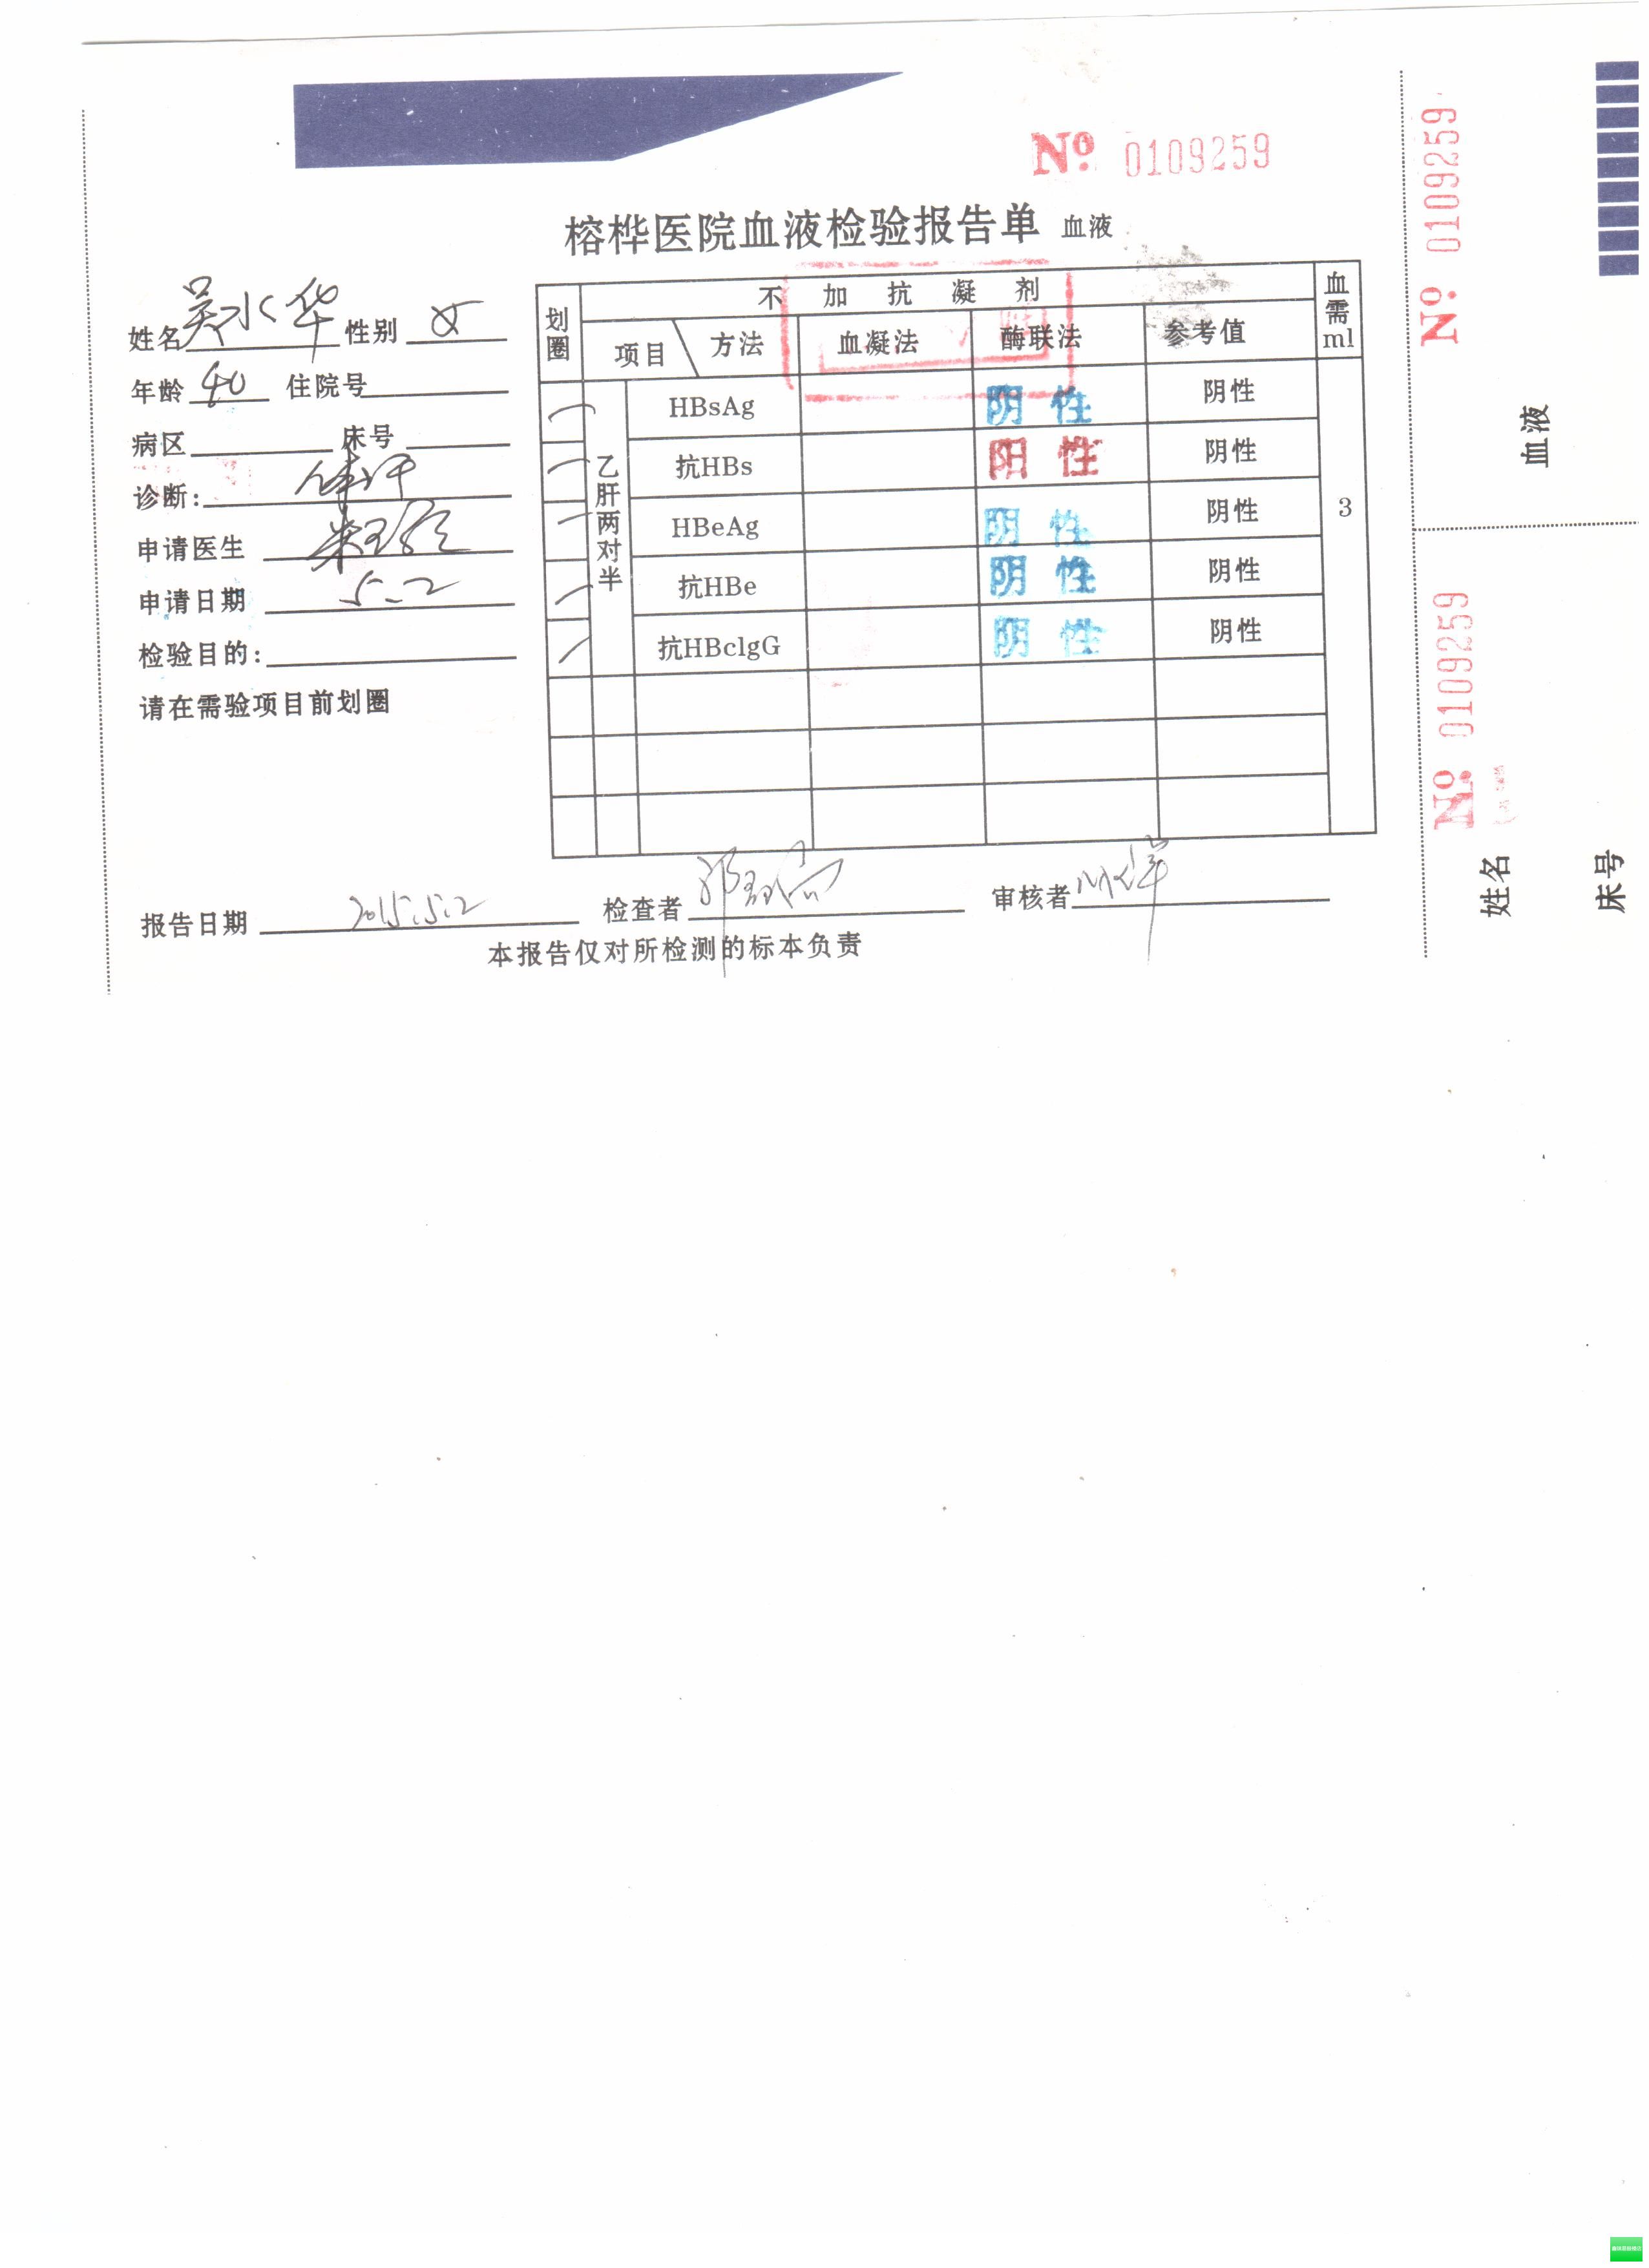 № 0109259
榕桦医院血液检验报告单 血液
姓名 吴水华 性别 女
年龄 40 住院号
病区 床号
诊断: 体评
申请医生
申请日期 5.2
检验目的:
请在需验项目前划圈
划圈 不加抗凝剂 血需ml
项目 方法 血凝法 酶联法 参考值
乙肝两对半
HBsAg 阴性 阴性
抗HBs 阳性 阴性
HBeAg 阴性 阴性
抗HBe 阴性 阴性
抗HBclgG 阴性 阴性
3
报告日期 2015.5.2 检查者 审核者
本报告仅对所检测的标本负责
№ 0109259
血液
№ 0109259
姓名
床号